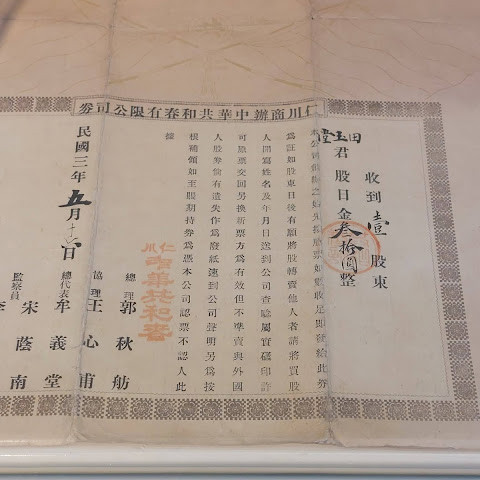 仁川商辦中華共和春有限公司券
收到壹股東
田玉堂君股日金叁拾圓整
本公司招股之始先換股票如數收足即發給此券
為註如股東日後有願將股轉賣他人者請將買股
人開寫姓名及年月日送到公司查騐屬實蓋印許
可原票交回另換新票方為有效但不準賣與外國
人股券倘有遺失作為廢紙速到公司聲明另為按
根補領如至股期持券為憑本公司認票不認人此
據
仁川
中華共和春
民國三年五月十六日
總理郭秋舫
協理王心甫
總代表牟義堂
監察員宋蔭南
李